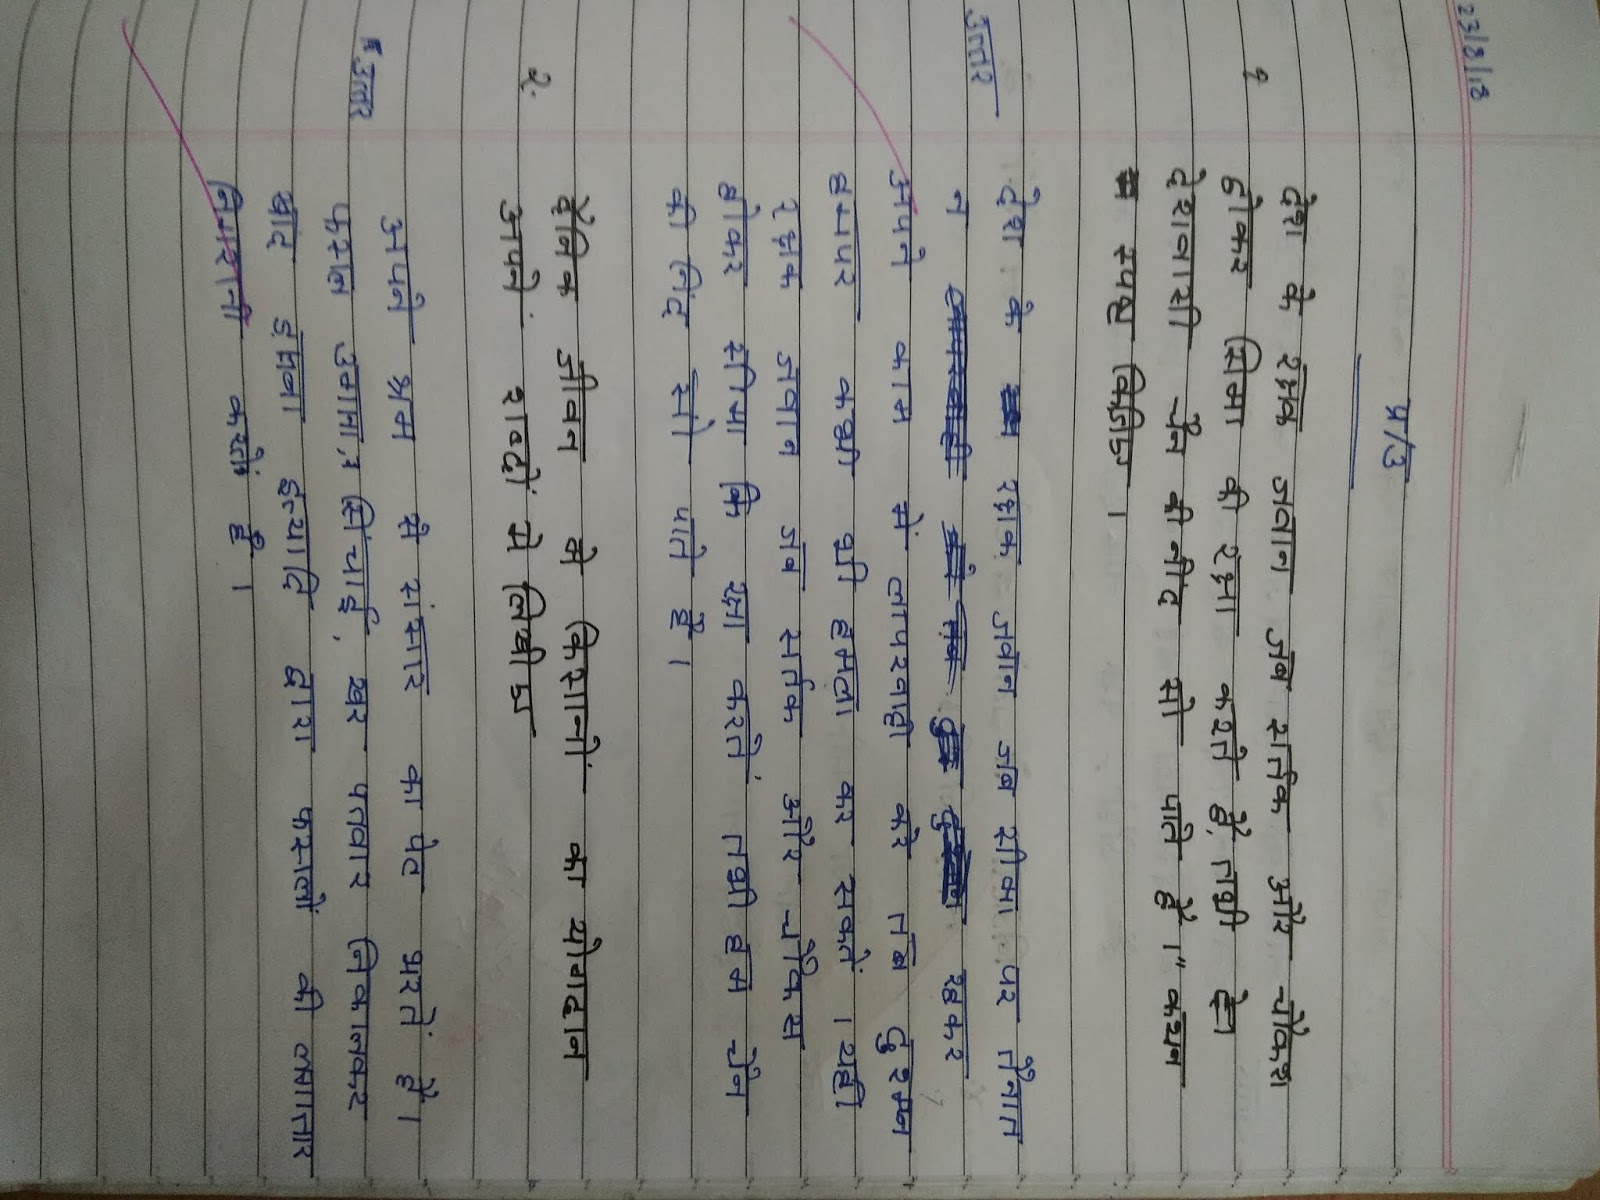 23/8/18
प्र/उ
१ देश के रक्षक जवान जब सर्तक और चौकश
होकर सिमा की रक्षा करते हैं, तभी हम
देशवासी चैन की नींद सो पाते हैं।" कथन
स्पष्ट किजिए ।
उत्तर देश के रक्षक जवान जब सीमा पर तैनात
न रहकर
अपने काम में लापरवाही करे तब दुश्मन
हमपर कभी भी हमला कर सकतें । यही
रक्षक जवान जब सर्तक और चौकस
होकर सीमा कि रक्षा करतें तभी हम चैन
की निंद सो पाते हैं ।
२. दैनिक जीवन मे किसानो का योगदान
अपने शब्दों मे लिखीए
उत्तर अपने श्रम से संसार का पेट भरतें हैं ।
फसल उगाना, सिंचाई, खर पतवार निकालकर
खाद डालना इत्यादि द्वारा फसलों की लगातार
निगरानी करतें हैं ।